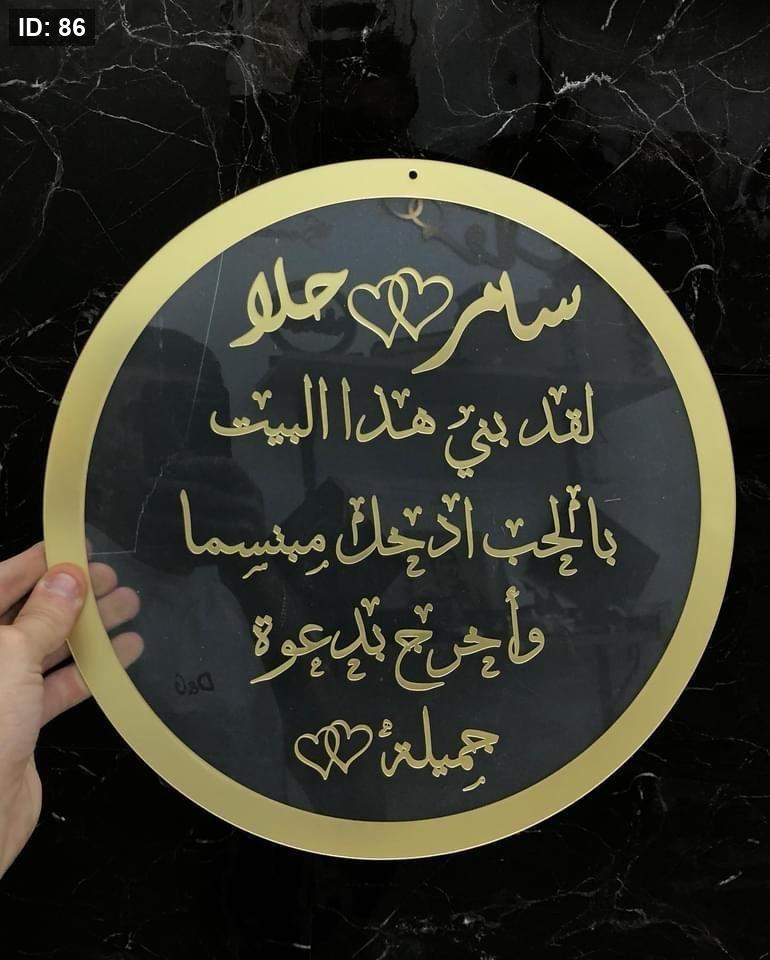 ID: 86
سامر حلا
لقد بني هذا البيت
بالحب ادخل مبتسما
وأخرج بدعوة
جميلة
D&G